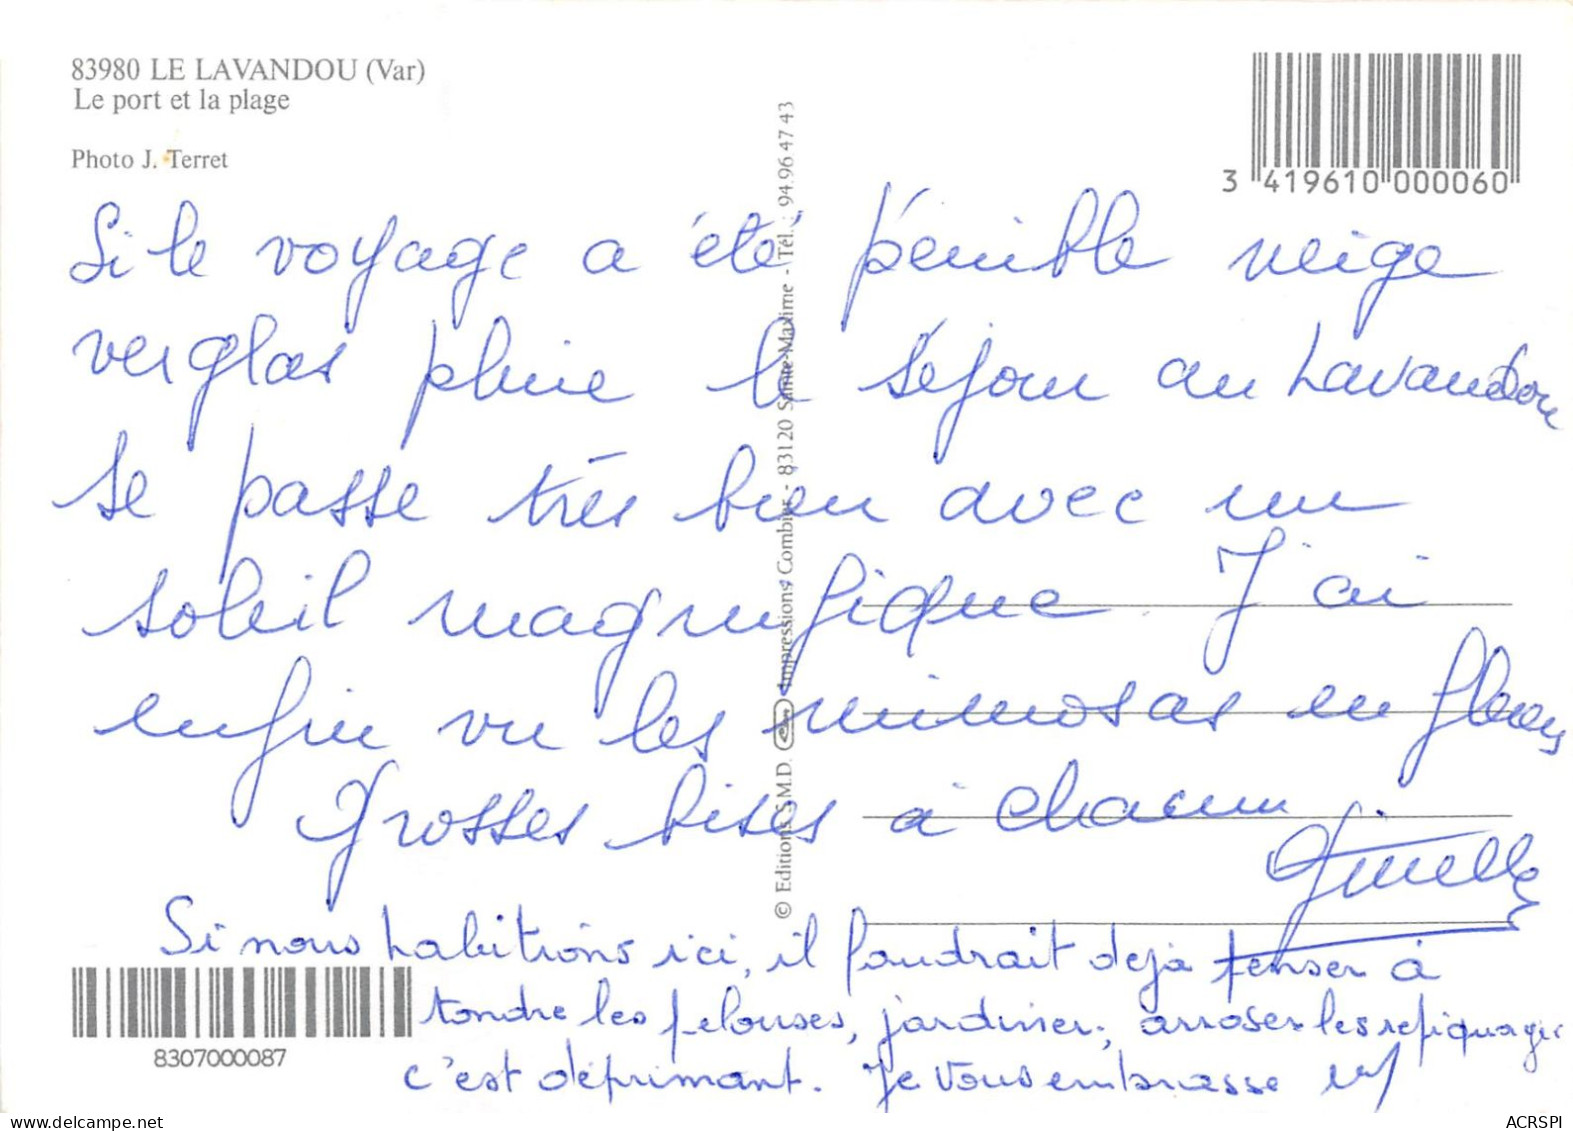 83980 LE LAVANDOU (Var)
Le port et la plage
Photo J. Terret
3 419610 000060
© Editions S.M.D. - Impressions Combier - 83120 Sainte-Maxime - Tél. : 94.96 47 43
Si le voyage a été pénible neige
verglas pluie le séjour au Lavandou
se passe très bien avec un
soleil magnifique. J'ai
enfin vu les mimosas en fleurs
Grosses bises à chacun
Ginette
Si nous habitions ici, il faudrait deja penser à
tondre les pelouses, jardiner, arroser les repiquages
c'est déprimant. Je vous embrasse
8307000087
www.delcampe.net
ACRSPI